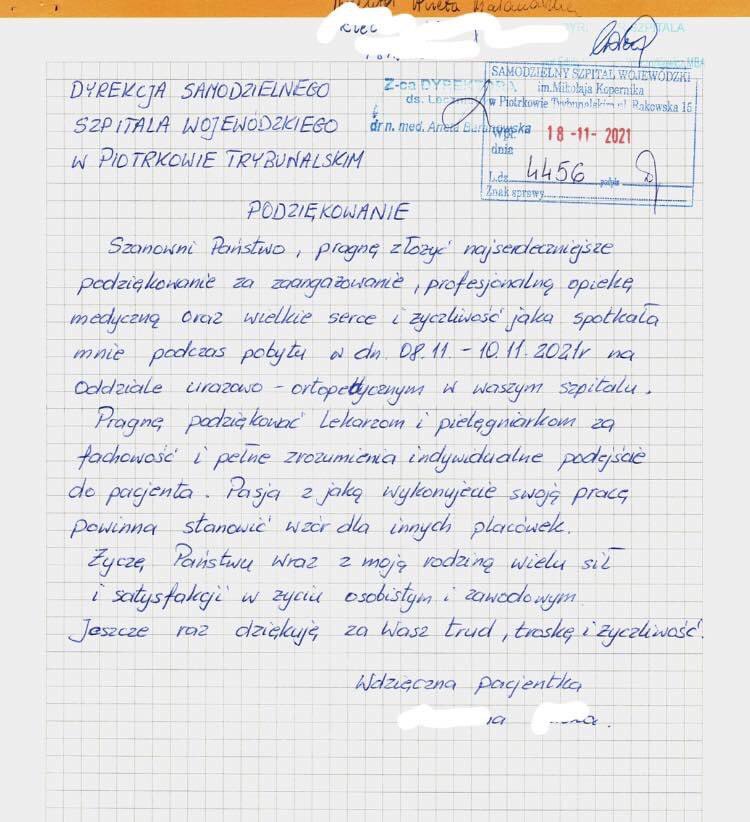 SZPITALA
DYREKCJA SAMODZIELNEGO
SZPITALA WOJEWÓDZKIEGO
W PIOTRKOWIE TRYBUNALSKIM
Z-ca DYREKTORA
ds. Lecz
dr n. med. Aneta
SAMODZIELNY SZPITAL WOJEWÓDZKI
im. Mikołaja Kopernika
w Piotrkowie Trybunalskim ul. Rakowska 15
Wpł.
dnia
18 -11- 2021
L.dz. 4456 podpis
Znak sprawy
PODZIĘKOWANIE
Szanowni Państwo, pragnę złożyć najserdeczniejsze
podziękowanie za zaangażowanie, profesjonalną opiekę
medyczną oraz wielkie serce i życzliwość jaka spotkała
mnie podczas pobytu w dn. 08.11. - 10.11.2021r na
Oddziale urazowo - ortopedycznym w waszym szpitalu.
Pragnę podziękować Lekarzom i pielęgniarkom za
fachowość i pełne zrozumienia indywidualne podejście
do pacjenta. Pasja z jaką wykonujecie swoją pracę
powinna stanowić wzór dla innych placówek.
Życzę Państwu wraz z moją rodziną wielu sił
i satysfakcji w życiu osobistym i zawodowym.
Jeszcze raz dziękuję za Wasz trud, troskę i życzliwość.
Wdzięczna pacjentka